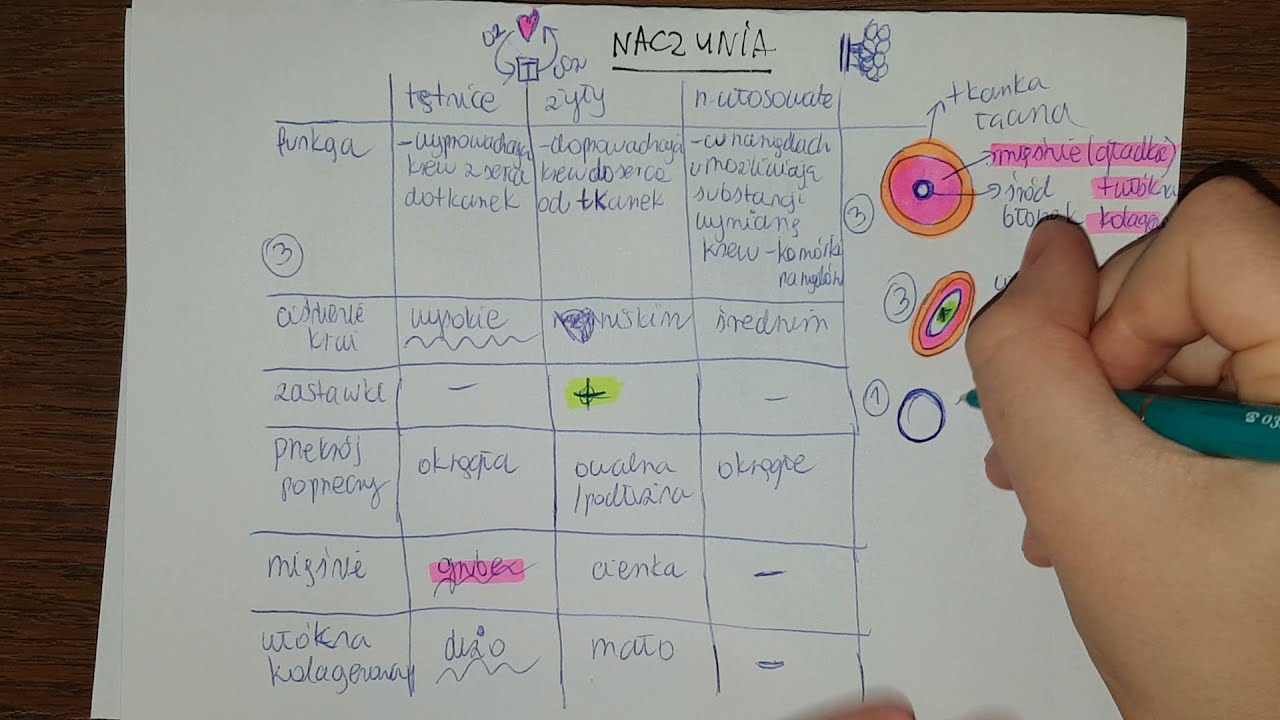 NACZYNIA
O2
T
tętnice żyły n. włosowate
funkcja
-wyprowadzają
krew z serca
do tkanek
-doprowadzają
krew do serca
od tkanek
-w narządach
umożliwiają
substancji
wymianę
krew - komórka
narządów
3
ciśnienie
krwi
wysokie
niskim
średnim
zastawki
—
+
—
przekrój
poprzeczny
okrągła
owalna
/podłużna
okrągłe
mięśnie
grube
cienka
—
włókna
kolagenowe
dużo
mało
—
tkanka
łączna
mięśnie (gładkie)
+włókn
kolage
śród
błonek
3
3
1